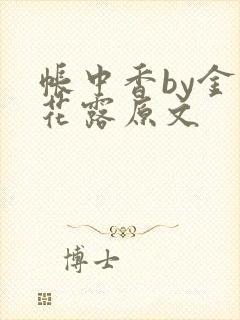 帐中香by金
花露原文
博士